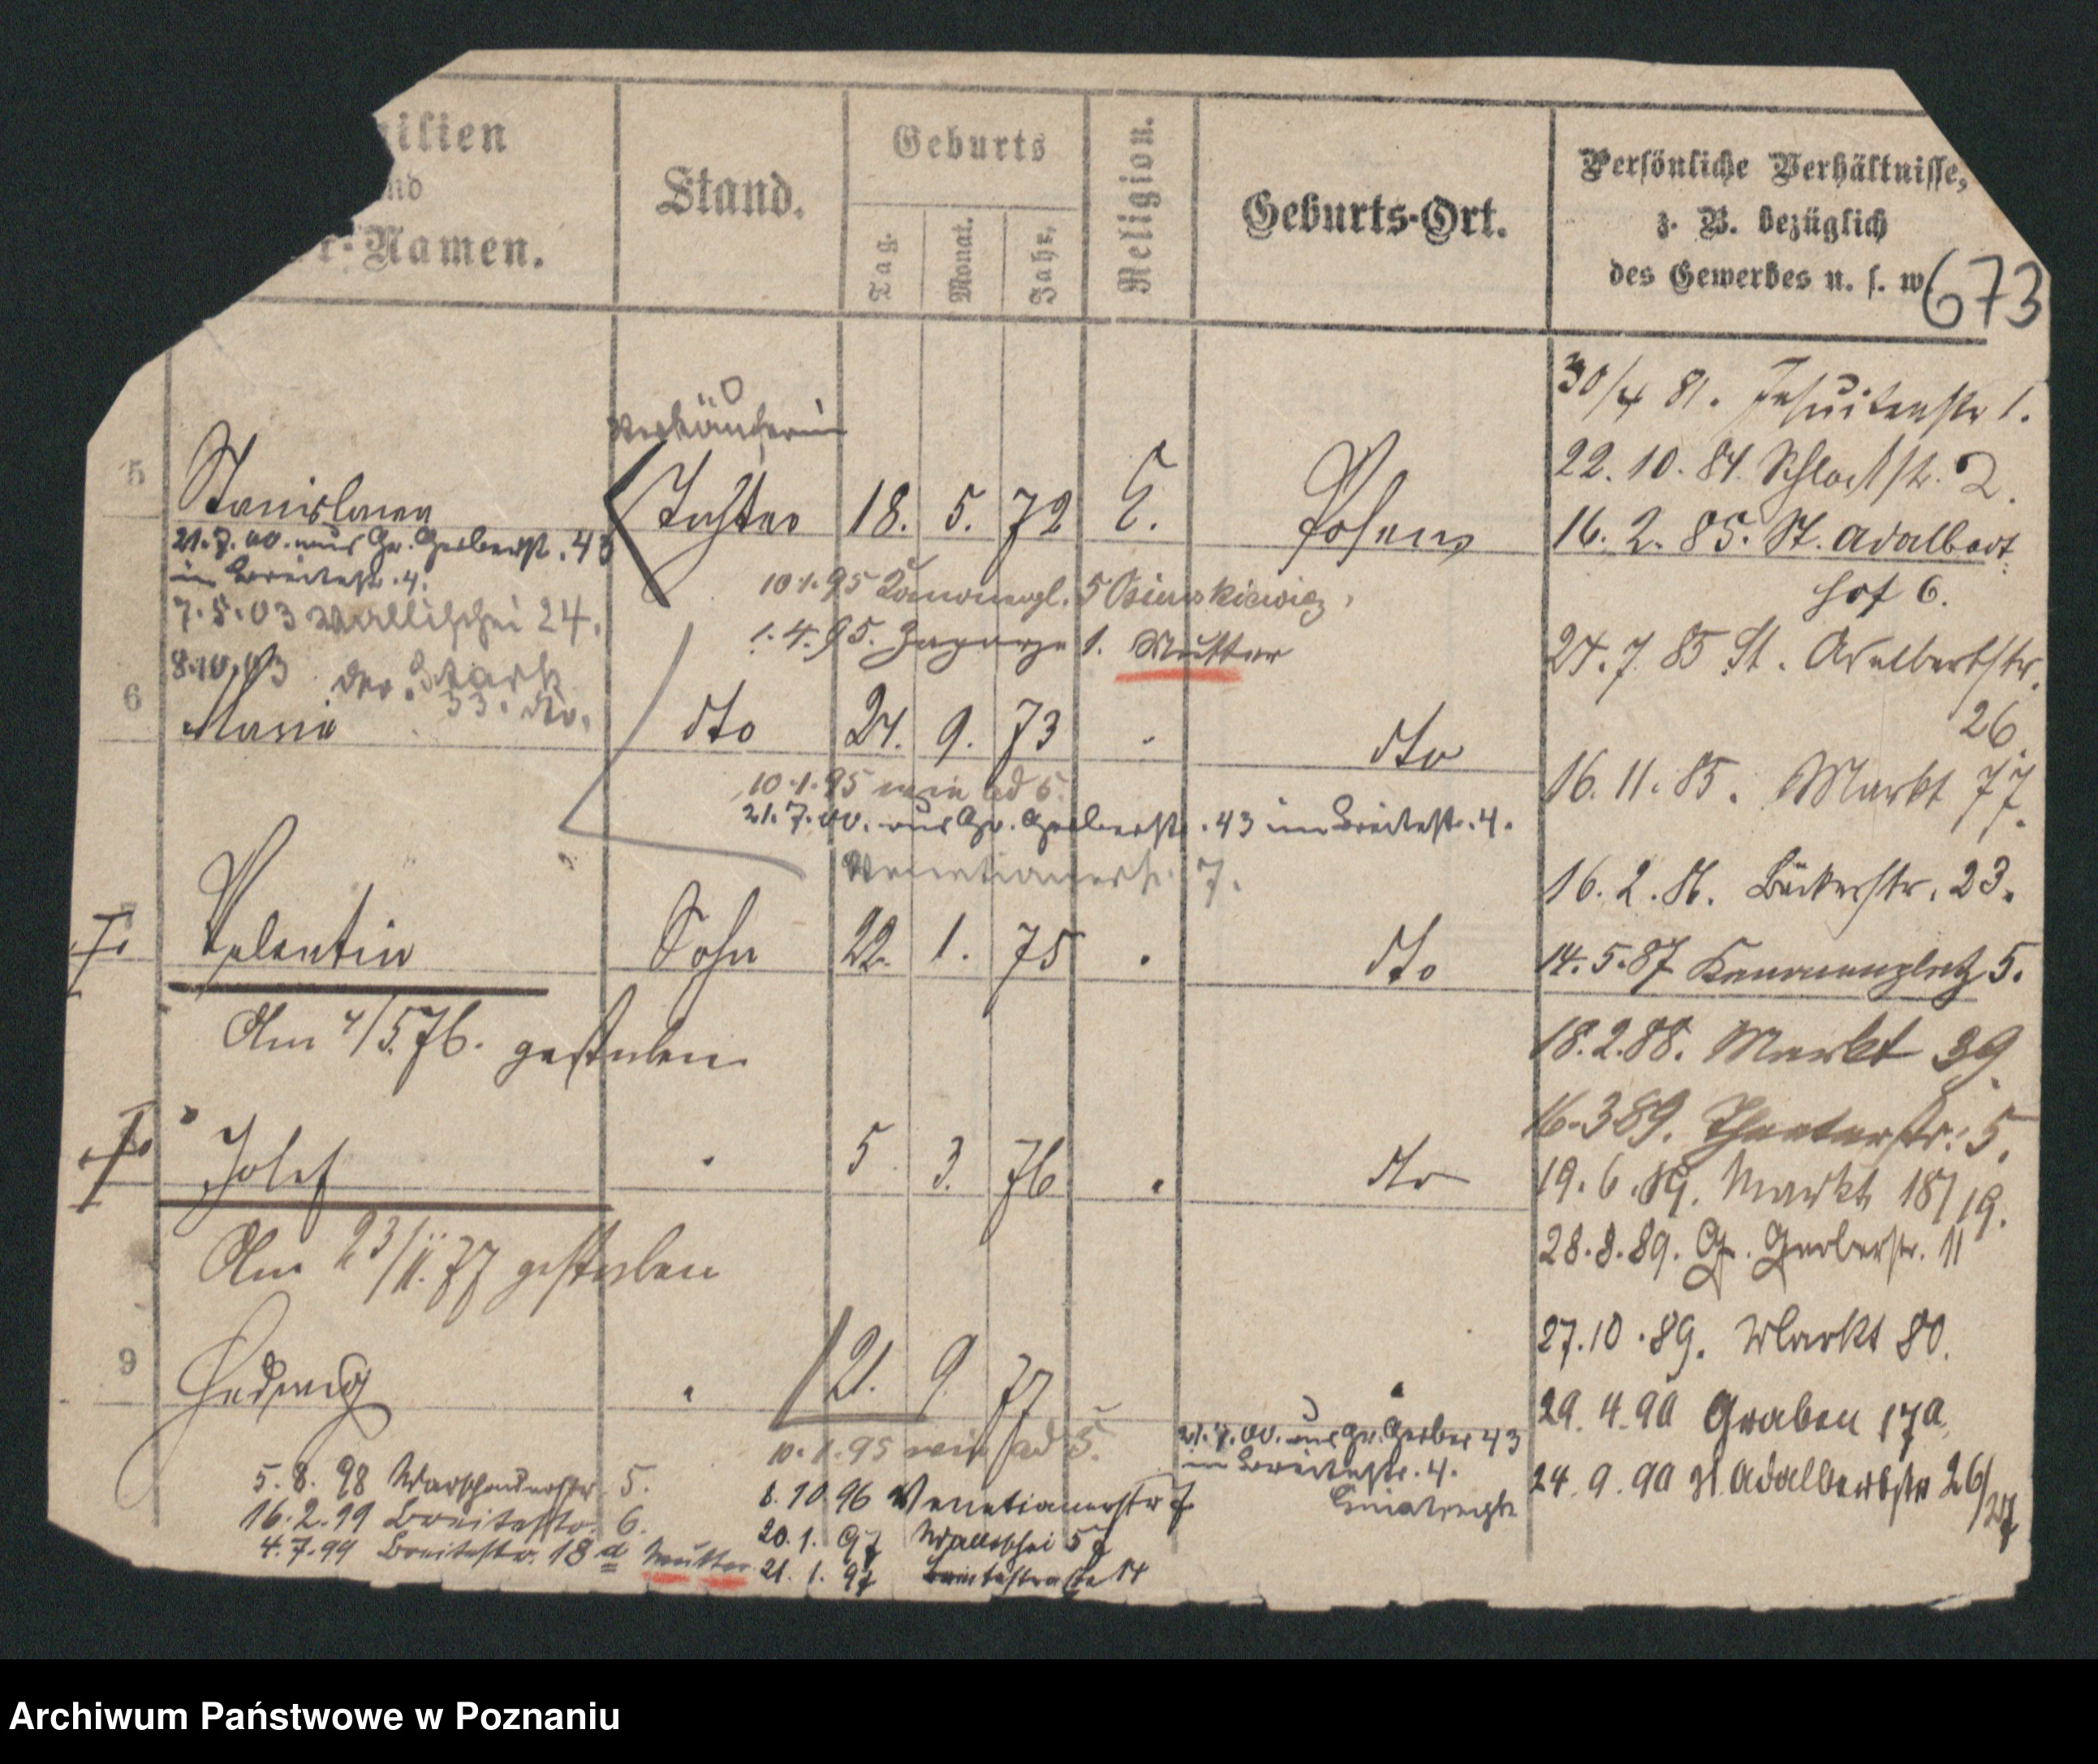 ilien
nd
r-Namen.
Stand.
Geburts
Tag.
Monat.
Jahr.
Religion.
Geburts-Ort.
Persönliche Verhältnisse,
z. B. bezüglich
des Gewerbes u. s. w
673
Verkäuferin
5 Stanislawa Tochter 18. 5. 72 C. Posen
21.7.00. aus Gr. Gerberstr. 43
in Breitestr. 4.
7.5.03 Wallischei 24.
8.10.03
53. dto.
10.1.95 5
1.4.95. Zagorze 1. Mutter
6 Maria dto 24. 9. 73 dto
10.1.95 wie ad 5.
21.7.00. aus Gr. Gerberstr. 43 in Breitestr. 4.
Venetianerstr. 7.
Valentin Sohn 22. 1. 75 . dto
Am 4/5.76. gestorben
Josef 5 3. 76 . dto
Am 23/11.77 gestorben
9 Hedwig 21. 9. 77
10.1.95 wie ad 5.
21.7.00. aus Gr. Gerber 43
in Breitestr. 4.
5.8.98 Warschauerstr. 5.
16.2.99 Breitestr. 6.
4.7.99 Breitestr. 18a Mutter
8.10.96 Venetianerstr 7
20.1.97 Wallischei 57
21.1.97 Breitestrasse 14
30/4 81. Jesuitenstr 1.
22.10.84. Schlosstr. 2.
16.2.85. St. Adalbert
hof 6.
24.7.85 St. Adalbertstr.
26.
16.11.85. Markt 77.
16.2.86. Bäckerstr. 23.
14.5.87 Kanonenplatz 5.
18.2.88. Markt 39.
16.3.89. Theaterstr. 5.
19.6.89. Markt 18/19.
28.8.89. Gr. Gerberstr. 11
27.10.89. Markt 80.
29.4.90 Graben 17a
24.9.90 St Adalbertstr 26/27
Archiwum Państwowe w Poznaniu